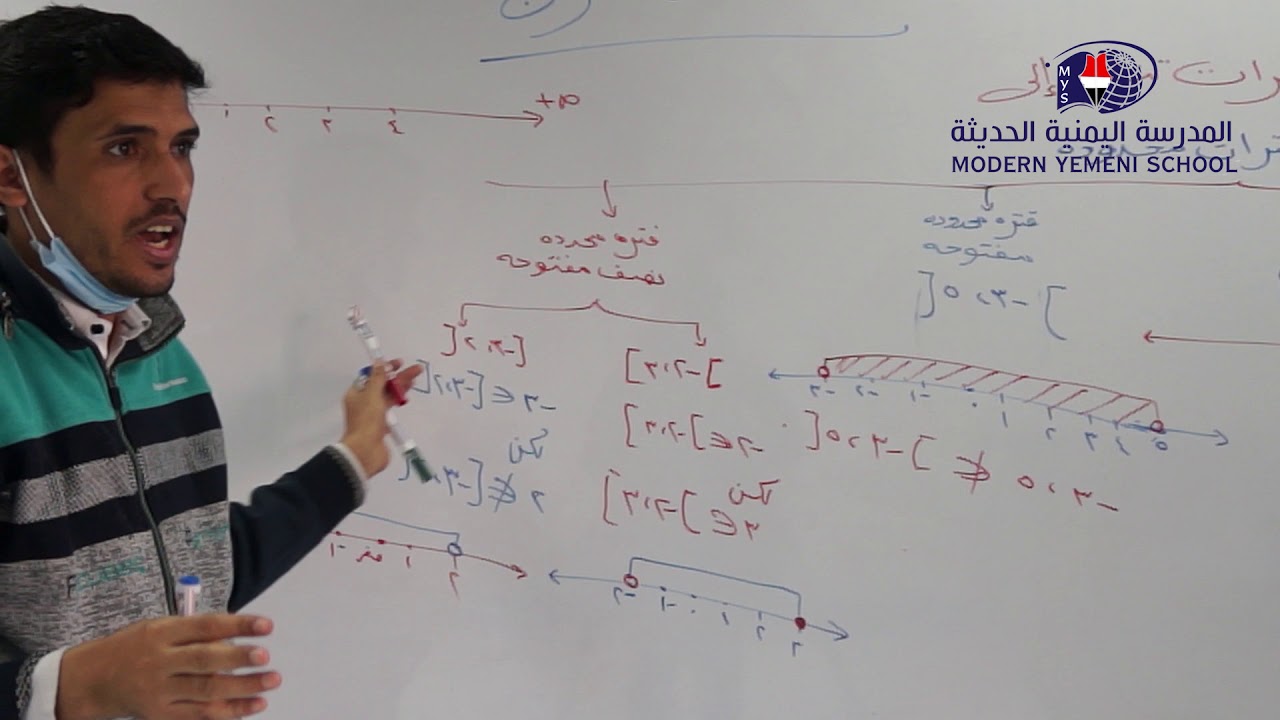 MYS
المدرسة اليمنية الحديثة
MODERN YEMENI SCHOOL
إلى
+∞
١ ٢ ٣ ٤
فتره محدوده
مفتوحه
]-٣، ٥[
-٣ -٢ -١ ٠ ١ ٢ ٣ ٤ ٥
-٣، ٥ ∉ ]-٣، ٥[
فتره محدده
نصف مفتوحه
]-٢، ٣]
-٢ ∉ ]-٢، ٣]
لكن
٣ ∈ ]-٢، ٣]
-٢ -١ ٠ ١ ٢ ٣
[-٣، ٢[
-٣ ∈ [-٣، ٢[
لكن
٢ ∉ [-٣،
-١ صفر ١ ٢